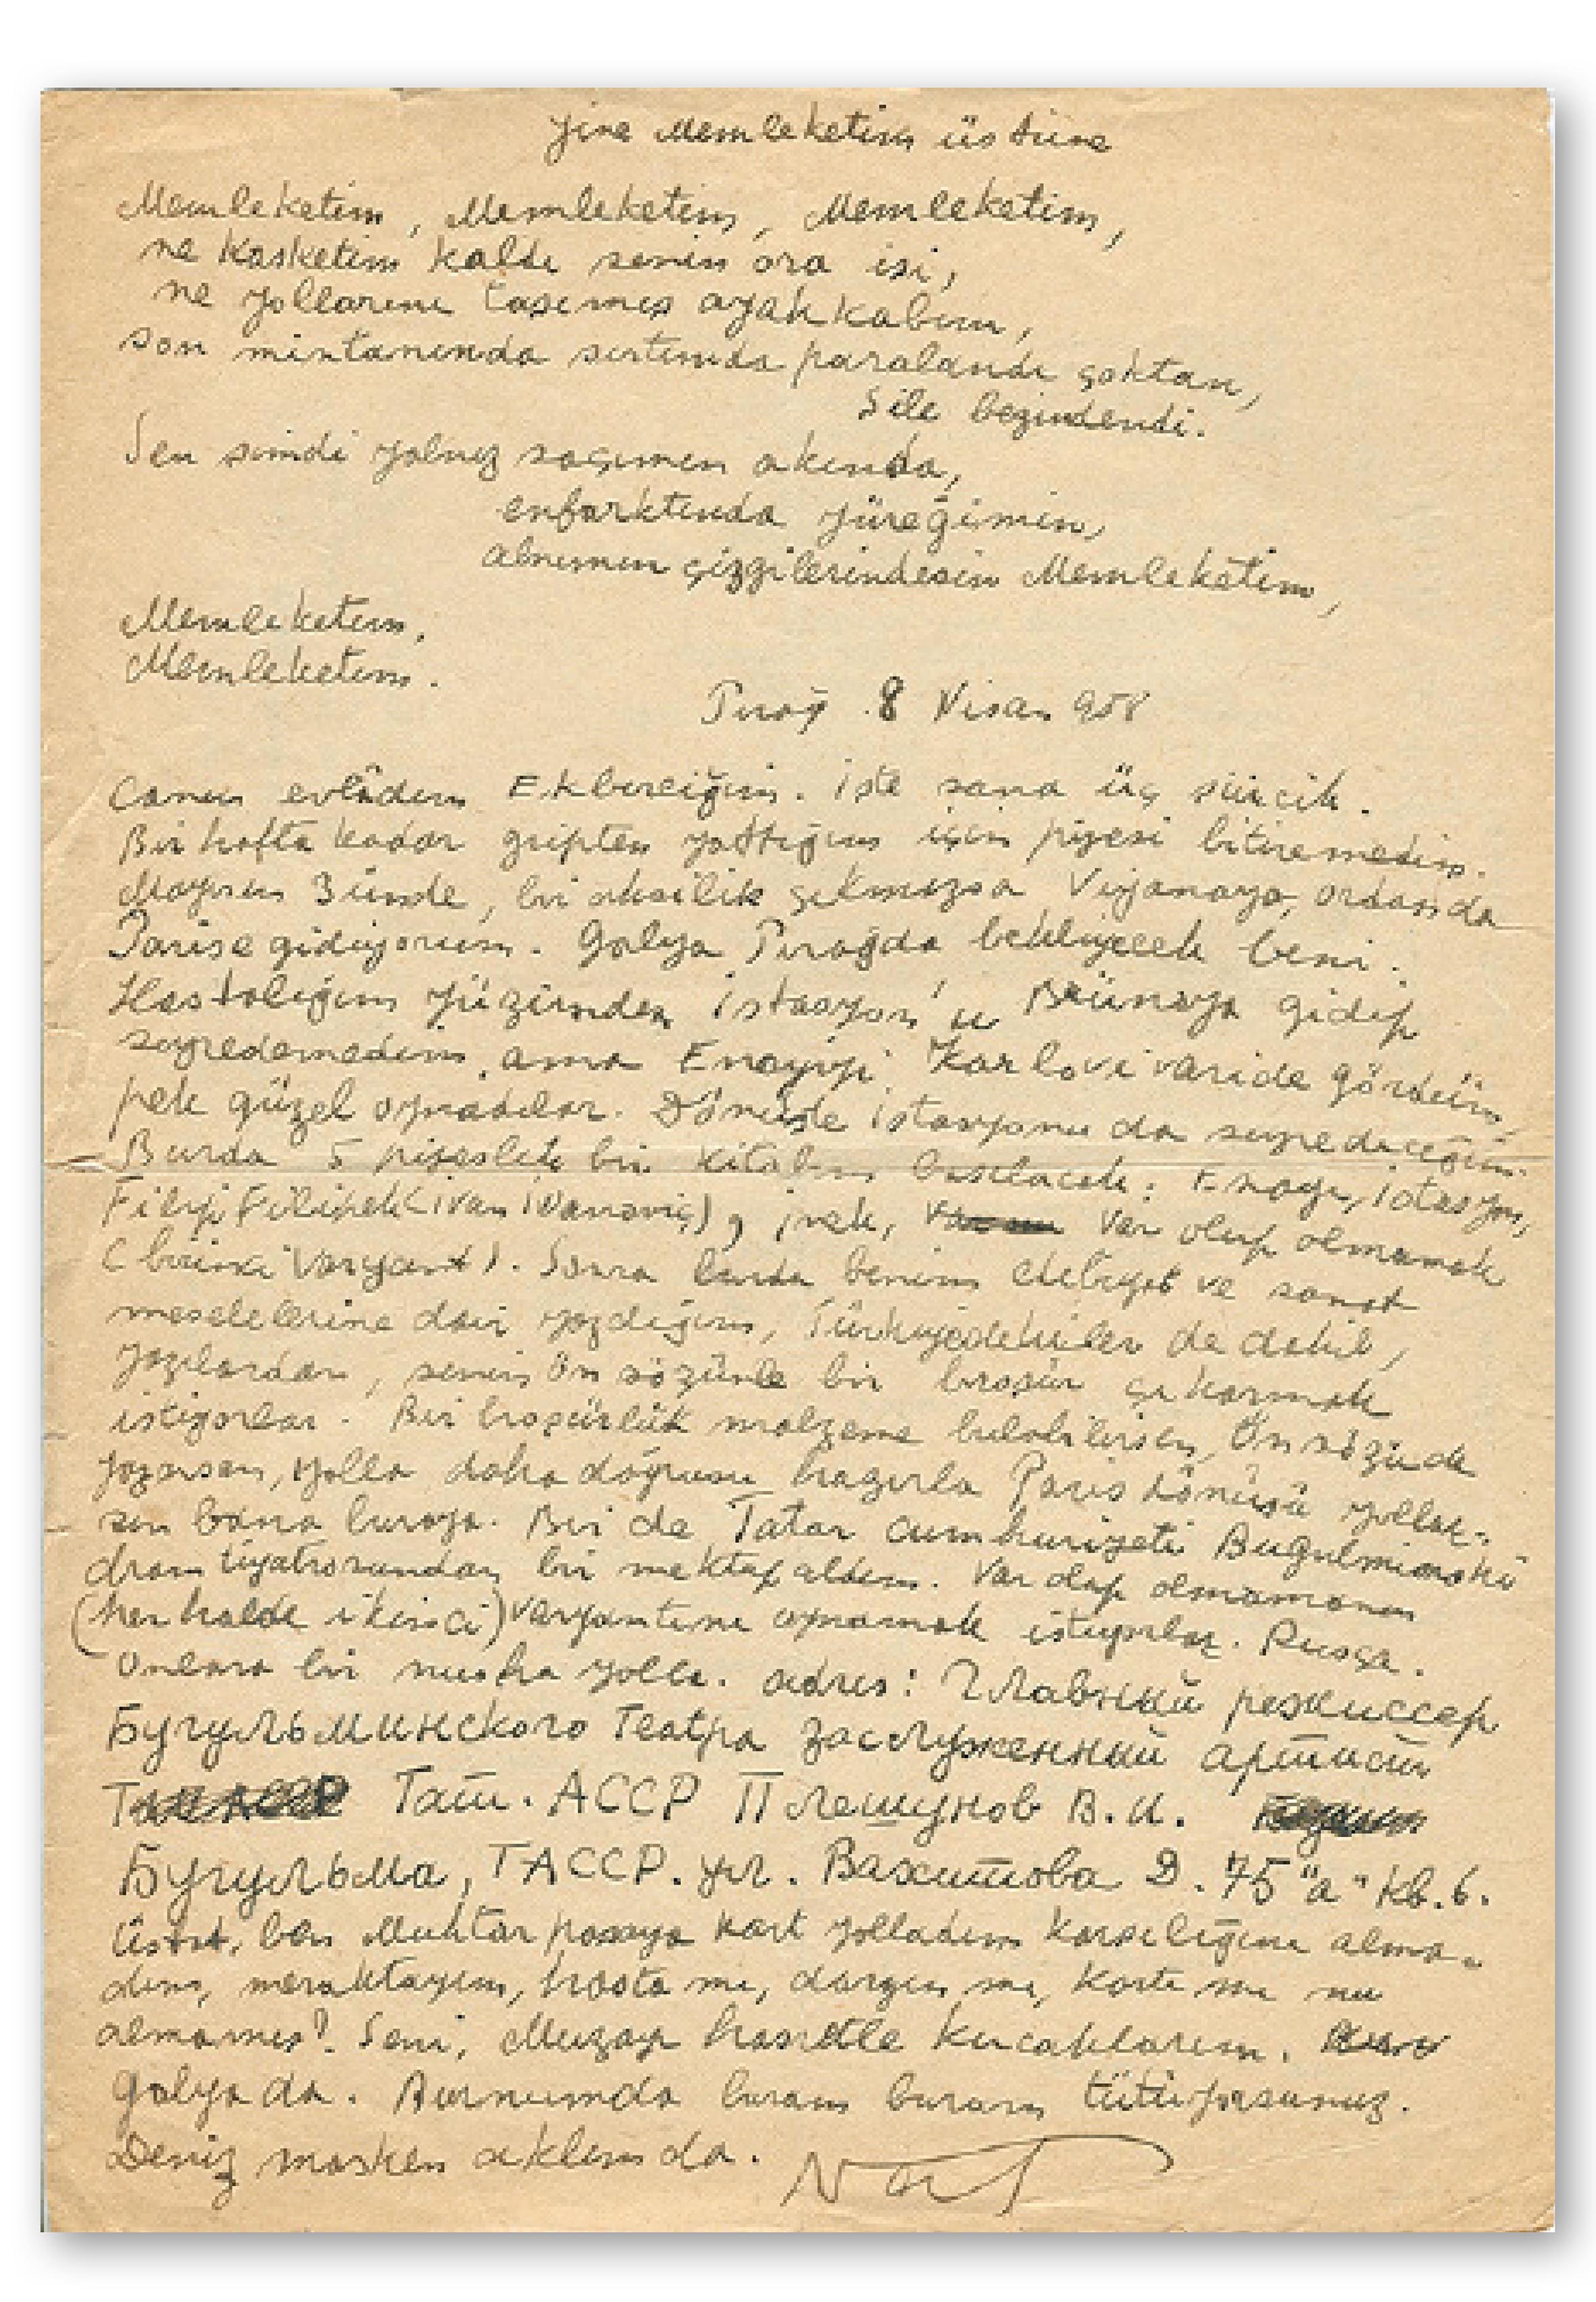 Yine Memleketim üstüne
Memleketim, Memleketim, Memleketim,
ne kasketim kaldı senin ora işi,
ne yollarını taşımış ayakkabım,
son mintanında sırtımda paralandı çoktan,
Şile bezindendi.
Sen şimdi yalnız saçımın akında,
enfarktında yüreğimin,
alnımın çizgilerindesin Memleketim,
Memleketim,
Memleketim.
Pırağ 8 Nisan 958
Canım evlâdım Ekberciğim. İşte sana üç şiircik.
Bir hafta kadar gripten yattığım için piyesi bitiremedim.
Mayısın 3ünde, bir aksilik çıkmazsa Viyanaya, ordan da
Parise gidiyorum. Galya Pırağda bekliyecek beni.
Hastalığım yüzünden İstasyon'u Brünoya gidip
seyredemedim, ama Enayiyi Karlovi varide gördüm,
pek güzel oynadılar. Dönüşte istasyonu da seyredeceğim.
Burda 5 piyeslik bir kitabım basılacak: Enayi, istasyon,
Filip Filipek (ivan ivanoviç), inek, Var olup olmamak
(birinci varyant). Sonra burda benim edebiyat ve sanat
meselelerine dair yazdığım, Türkiyedekiler de dahil,
yazılardan, senin ön sözünle bir broşür çıkarmak
istiyorlar. Bir broşürlük malzeme bulabilirsen, Ön sözü de
yazarsan, yolla daha doğrusu hazırla Paris dönüşü yollar-
sın bana buraya. Bir de Tatar cumhuriyeti Bugulminski
dram tiyatrosundan bir mektup aldım. Var olup olmamanın
(her halde ikinci) varyantını oynamak istiyorlar. Rusça.
Onlara bir nusha yolla. adres: Главный режиссер
Бугульминского Театра заслуженный артист
Тат. АССР Плешунов В.И.
Бугульма, ТАССР. ул. Вахитова Д. 75 "а" кв. 6.
Üstat, ben Muhtar paşaya kart yolladım karşılığını alma-
dım, meraktayım, hasta mı, dargın mı, kartı mı nu
almamış? Seni, Muzay hasretle kucaklarım.
Galya da. Burnumda buram buram tütüyorsunuz.
Deniz masken aklımda.